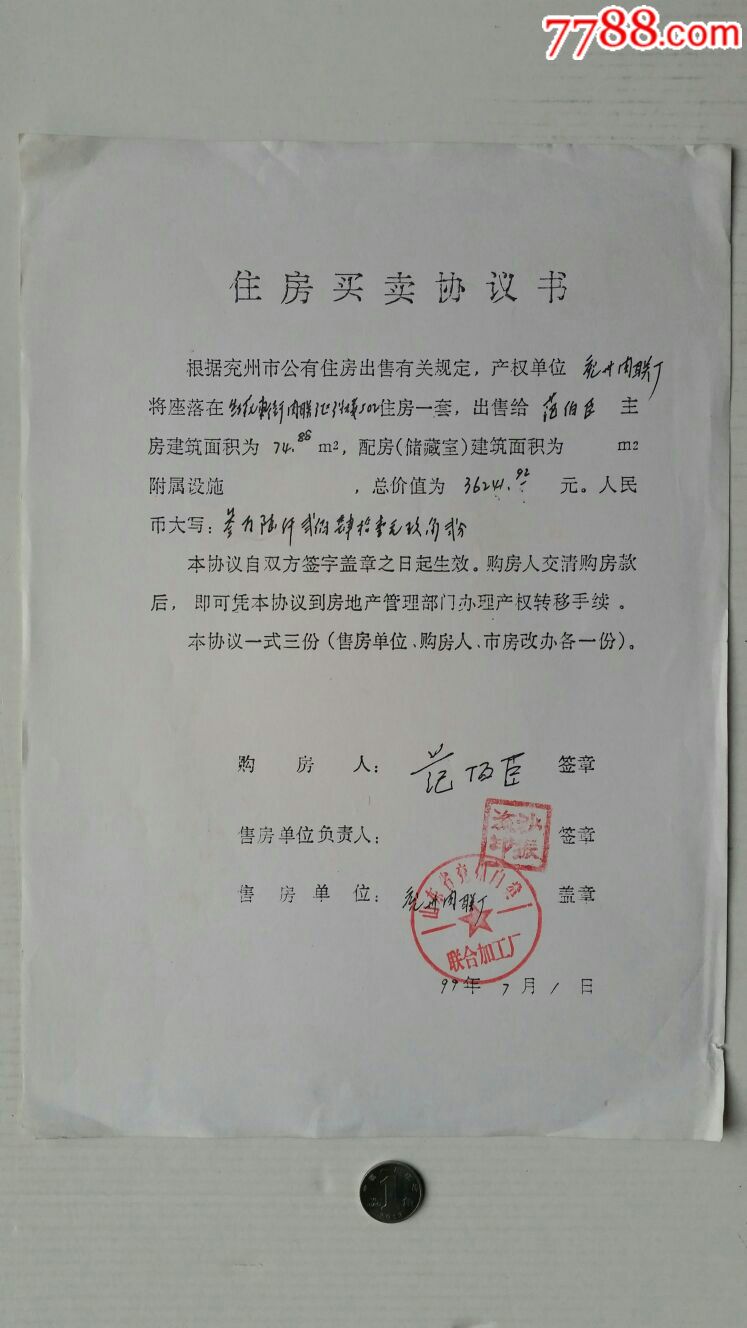 7788.com
住房买卖协议书
根据兖州市公有住房出售有关规定，产权单位 兖州肉联厂
将座落在 肉联 502住房一套，出售给 范伯臣 主
房建筑面积为 74.88 m2，配房(储藏室)建筑面积为 m2
附属设施 ，总价值为 36241.92 元。人民
币大写：叁万陆仟贰佰肆拾壹元玖角贰分
本协议自双方签字盖章之日起生效。购房人交清购房款
后，即可凭本协议到房地产管理部门办理产权转移手续。
本协议一式三份(售房单位、购房人、市房改办各一份)。
购房人： 范伯臣 签章
售房单位负责人： 签章
售房单位： 兖州肉联厂 盖章
山东省兖州肉类
联合加工厂
99年7月1日
1